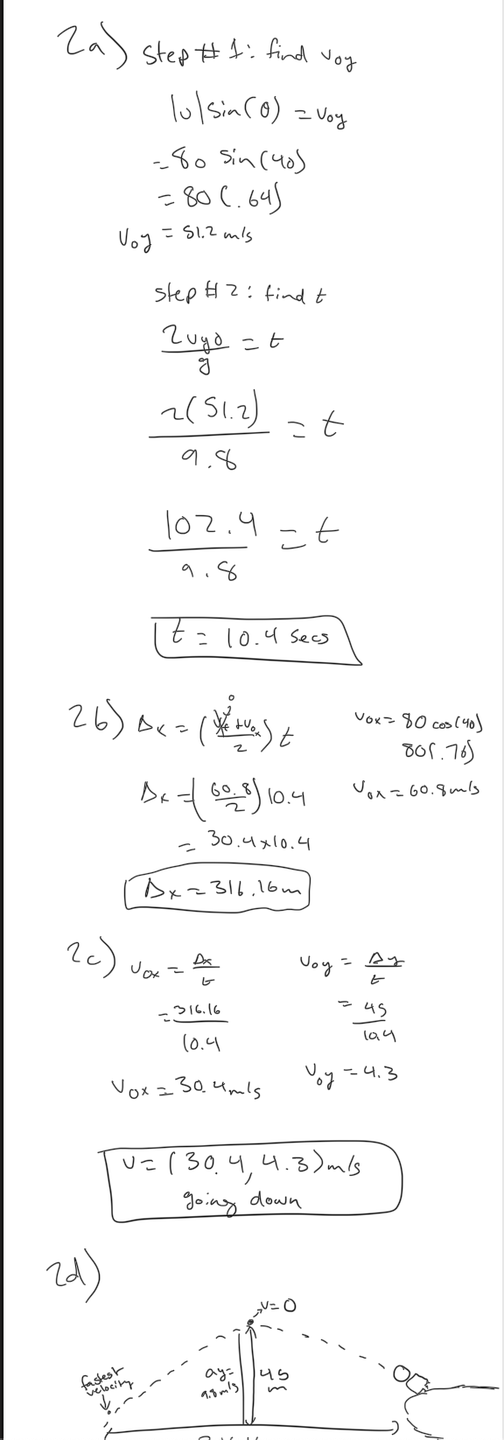 2a) Step # 1: find voy
|v|sin(θ) = voy
= 80 sin(40)
= 80(.64)
voy = 51.2 m/s
step # 2: find t
2vyo/g = t
2(51.2)/9.8 = t
102.4/9.8 = t
t = 10.4 secs
2b) Δx = ( + vox/2) t
vox = 80 cos(40)
80(.76)
Δx = (60.8/2) 10.4
vox = 60.8 m/s
= 30.4 x 10.4
Δx = 316.16m
2c) vox = Δx/t
voy = Δy/t
= 316.16/10.4
= 45/10.4
vox = 30.4 m/s
voy = 4.3
v = (30.4, 4.3) m/s
going down
2d)
v = 0
fastest
velocity
ay =
9.8 m/s
45
m